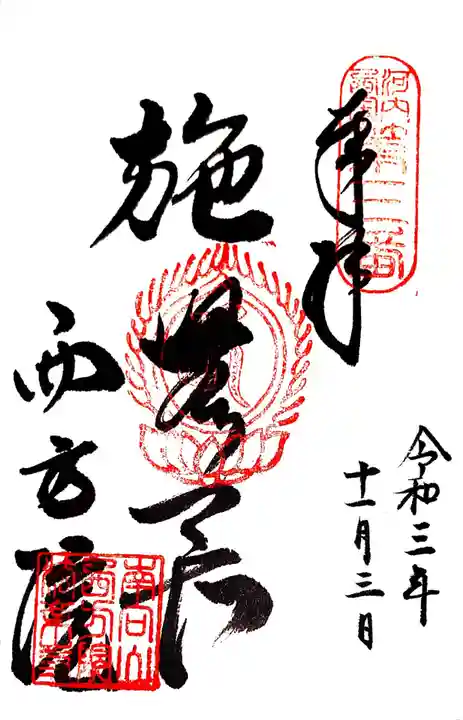 河内西国
三番
奉拝
令和三年
十一月三日
施無畏
西方院
南向山
西方院